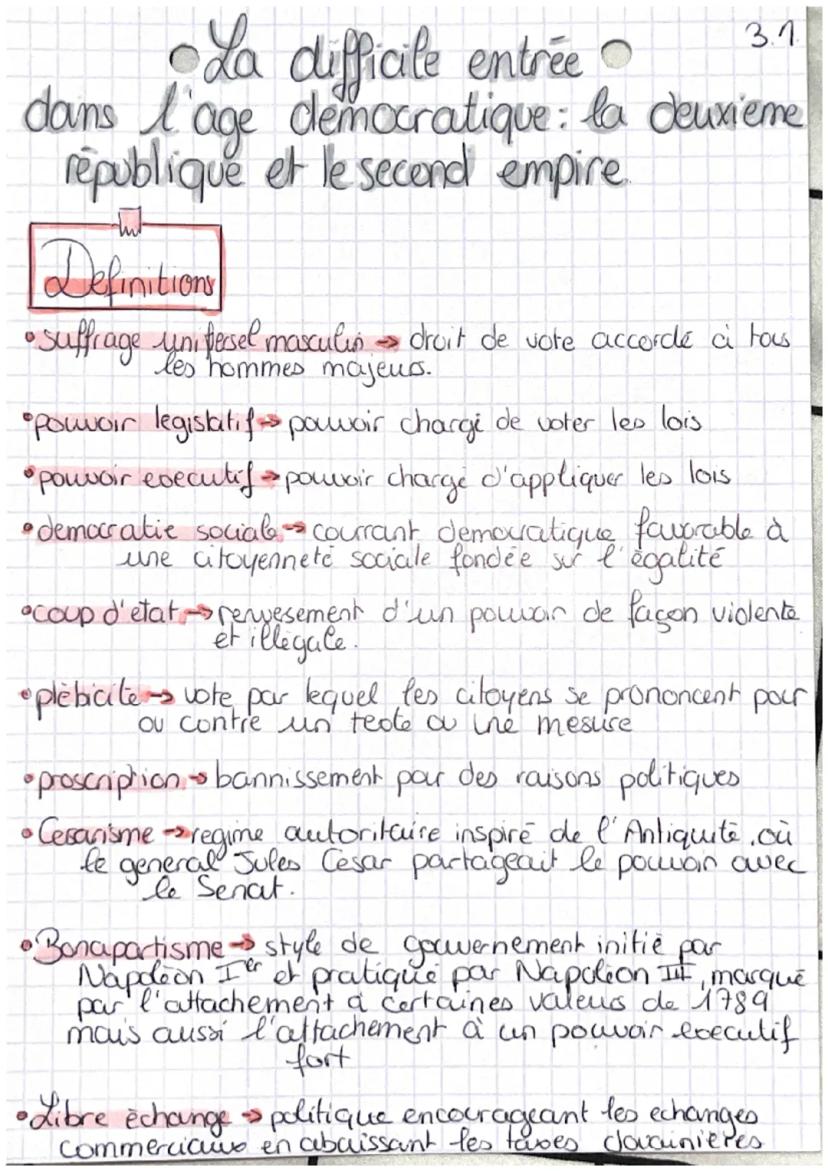 3.1
La difficile entrée
dans l'age démocratique: la deuxieme
république et le second empire.
Definitions
suffrage universel masculin → droit de vote accordé à tous
les hommes majeurs.
pouvoir legislatif → pouvoir chargé de voter les lois
pouvoir executif → pouvoir chargé d'appliquer les lois
democratie sociale → courrant democratique favorable à
une citoyenneté sociale fondée sur l'égalité
coup d'etat → renversement d'un pouvoir de façon violente
et illégale.
plébicite → vote par lequel les citoyens se prononcent pour
ou contre un texte ou une mesure
proscription → bannissement pour des raisons politiques
Cesarisme → regime autoritaire inspiré de l'Antiquité, où
le general Jules César partageait le pouvoir avec
le Senat.
Bonapartisme → style de gouvernement initié par
Napoléon Ier et pratiqué par Napoléon III, marqué
par l'attachement a certaines valeurs de 1789
mais aussi l'attachement à un pouvoir executif
fort
Libre échange → politique encourageant les echanges
commerciaux en abaissant les taxes douanières